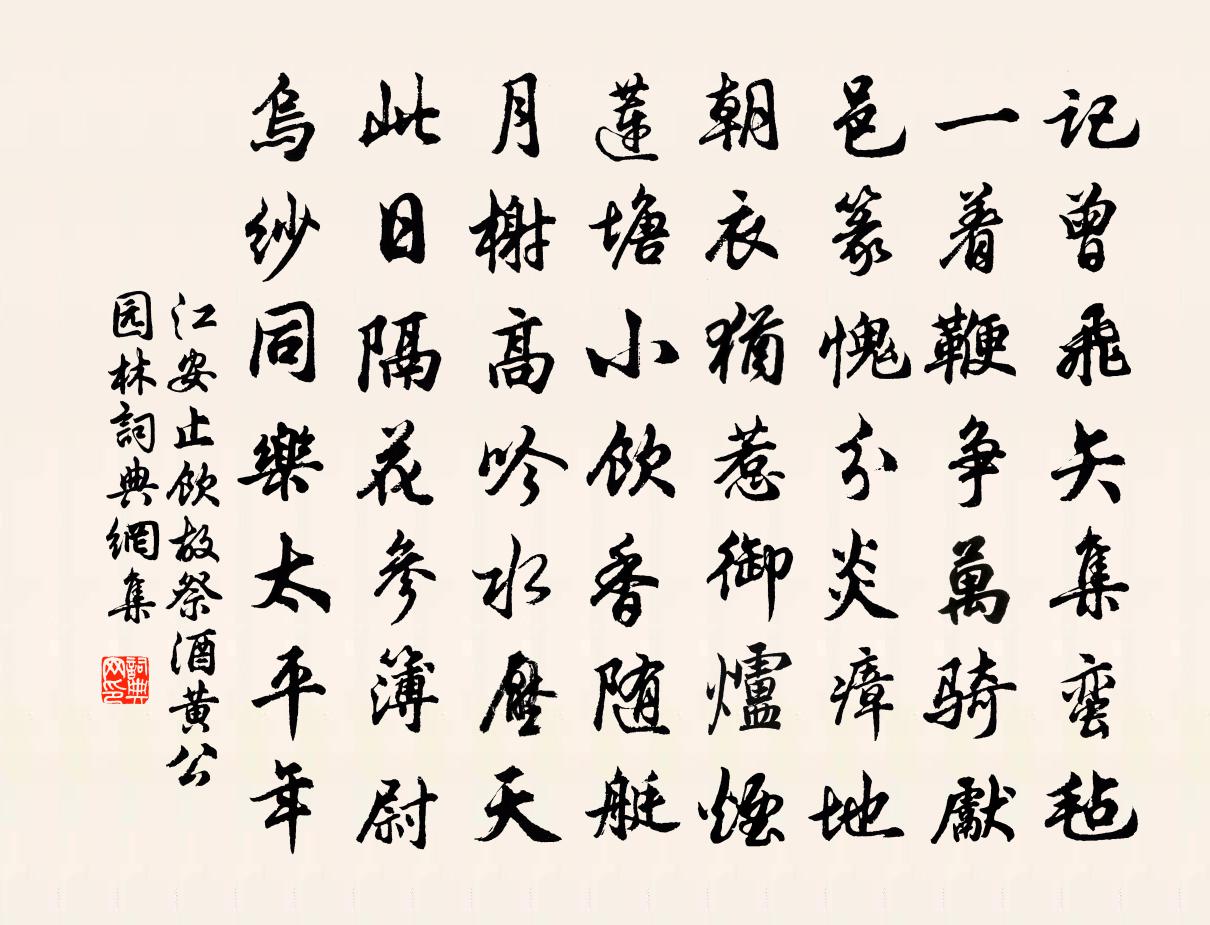 記曾飛矢集蛮毡
一着鞭争萬騎獻
邑篆愧分炎瘴地
朝衣猶惹御爐煙
蓮塘小飲香随艇
月榭高吟水壓天
此日隔花參簿尉
烏紗同樂太平年
江安止飲故祭酒黄公
园林詞典網集
詞典网印